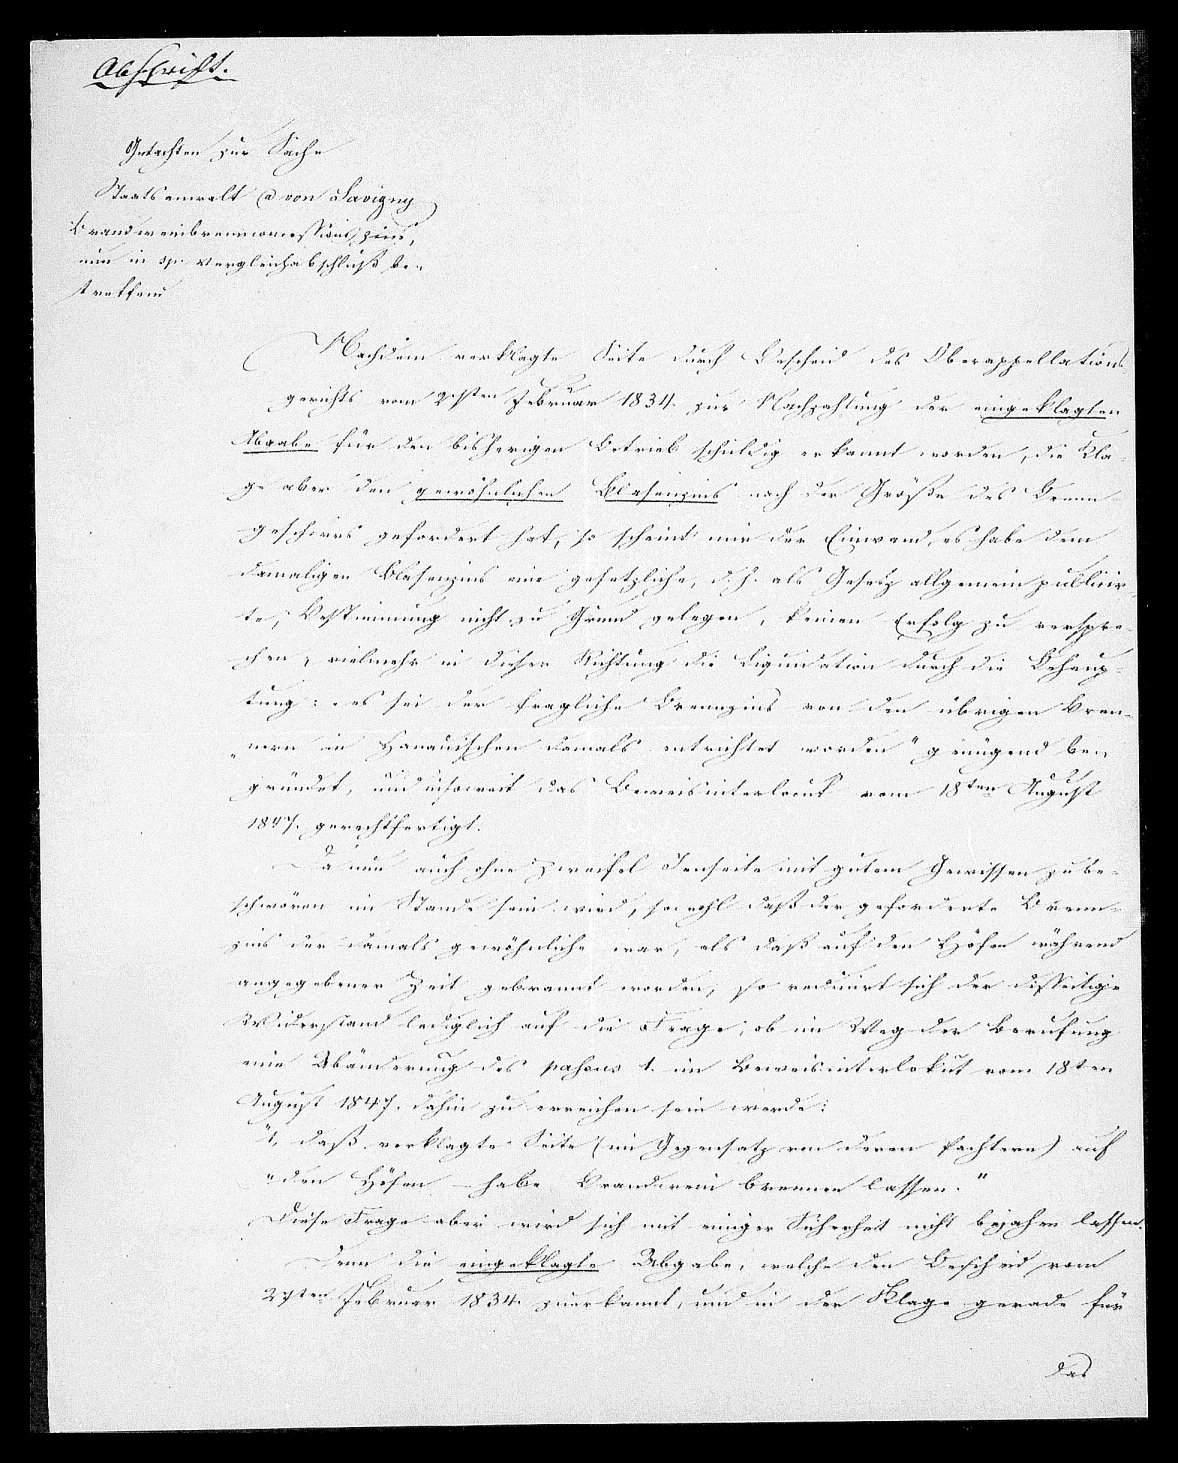 Abschrift.
Gutachten zur Sache
Staatsanwalt @ von Savigny
Brandweinbrennconcessionszins,
nun in sp. Vergleichabschluß be-
treffend
Nachdem verklagte Seite durch Bescheid des Oberappellations-
gerichts vom 27sten Februar 1834. zur Nachzahlung der eingeklagten
Abgabe für den bisherigen Betrieb schuldig erkannt worden, die Kla-
ge aber den gewöhnlichen Blasenzins nach der Größe des Brenn-
geschirrs gefordert hat, so scheint mir der Einwand, es habe dem
damaligen Blasenzins eine gesetzliche, d.h. als Gesetz allgemein publicir-
te, Bestimmung nicht zu Grund gelegen, keinen Erfolg zu verspre-
chen, vielmehr in dieser Richtung die Liquidation durch die Behaup-
tung: es sei der fragliche Brennzins von den übrigen Bren-
"nern im Hanauischen damals entrichtet worden" genügend be-
gründet, und insoweit das Beweisinterlocut vom 18ten August
1847. gerechtfertigt.
Da nun auch ohne Zweifel Jenseite mit gutem Gewissen zu be-
schwören im Stande sein wird, sowohl daß der geforderte Brenn-
zins der damals gewöhnliche war, als daß auf den Höfen während
angegebener Zeit gebrannt worden, so reducirt sich der disseitige
Widerstand lediglich auf die Frage, ob im Weg der Berufung
eine Abänderung des passus 1. im Beweisinterlokut vom 18ten
August 1847. dahin zu erreichen sein werde:
"1, daß verklagte Seite (im Gegensatz von deren Pachtern) auf
"den Höfen – habe Brandwein brennen lassen."
Diese Frage aber wird sich mit einiger Sicherheit nicht bejahen lassen.
Denn die eingeklagte Abgabe, welche den Bescheid vom
27sten Februar 1834. zuerkannt, und in der Klage gerade für
das